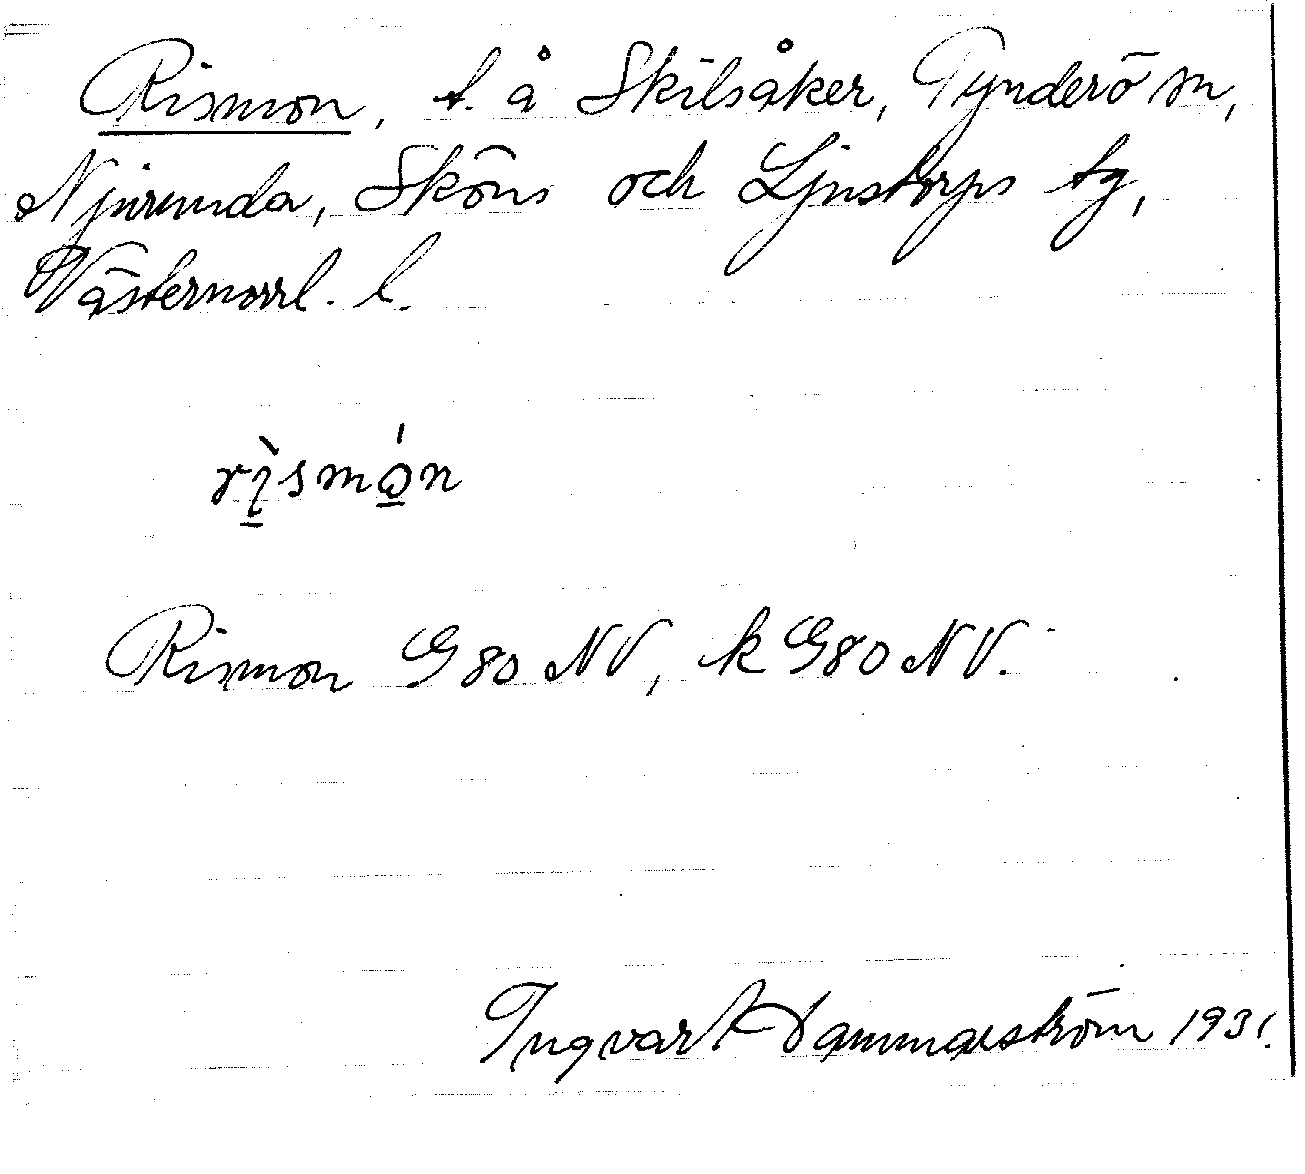 Rismon, t. å Skilsåker, Tynderö sn,
Njurunda, Sköns och Ljustorps tg,
Västernorrl. l.
rı̀smón
Rismon G80 NV, k G80 NV.
Ingvar Hammarström 1931.